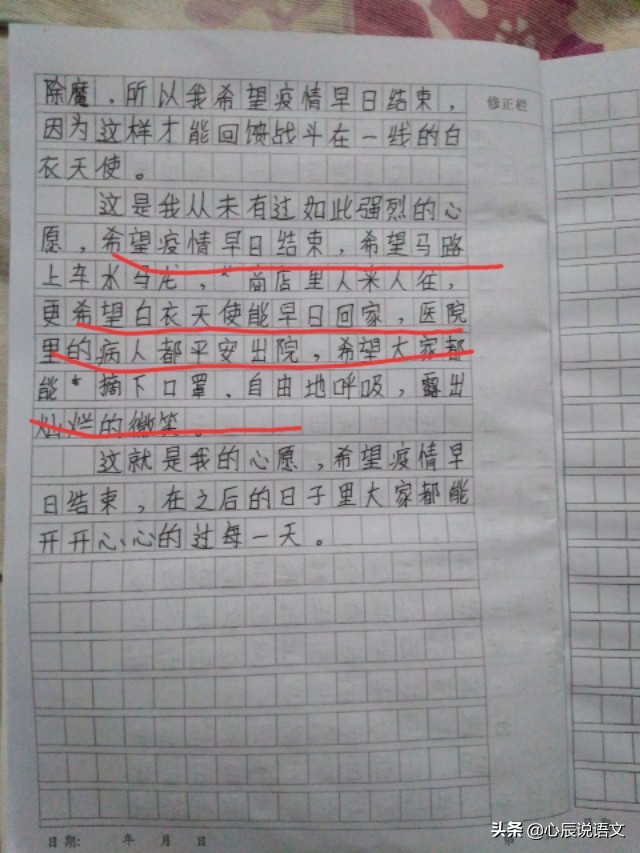 除魔，所以我希望疫情早日结束，
修正栏
因为这样才能回馈战斗在一线的白
衣天使。
这是我从未有过如此强烈的心
愿，希望疫情早日结束，希望马路
上车水马龙，商店里人来人往，
更希望白衣天使能早日回家，医院
里的病人都平安出院，希望大家都
能摘下口罩，自由地呼吸，露出
灿烂的微笑。
这就是我的心愿，希望疫情早
日结束，在之后的日子里大家都能
开开心心的过每一天。
日期: 年 月 日
头条 @心辰说语文